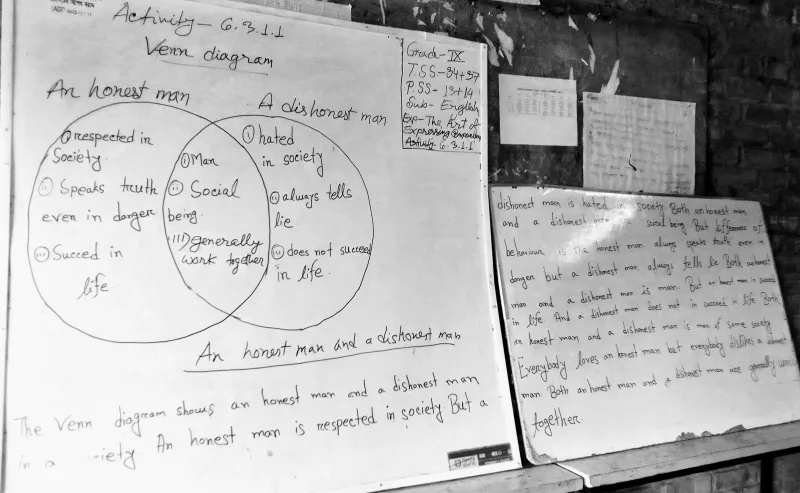 Activity- 6.3.1.1
Venn diagram
Grade- IX
T.SS-34+37
P.SS- 13+14
Sub- English
Exp- The Art of
Expressing
Activity- 6.3.1.1
An honest man
A dishonest man
(i) respected in
Society.
(ii) Speaks truth
even in danger
(iii) Succed in
life.
(i) Man
(ii) Social
being.
(iii) generally
work together
(i) hated
in society
(ii) always tells
lie
(iii) does not succeed
in life.
An honest man and a dishonest man
The Venn diagram shows an honest man and a dishonest man
in a An honest man is respected in society But a
dishonest man is hated in society Both an honest man
and a dishonest social being But differences of
behaviour is the honest man always speaks truth even in
danger but a dishonest man always tells lie Both an honest
man and a dishonest man is man. But an honest man in succeed
in life. And a dishonest man does not in succeed in life Both
an honest man and a dishonest man is man of same society
Everybody loves an honest man but everybody dislikes a dishonest
man. Both an honest man and a dishonest man are generally
together.